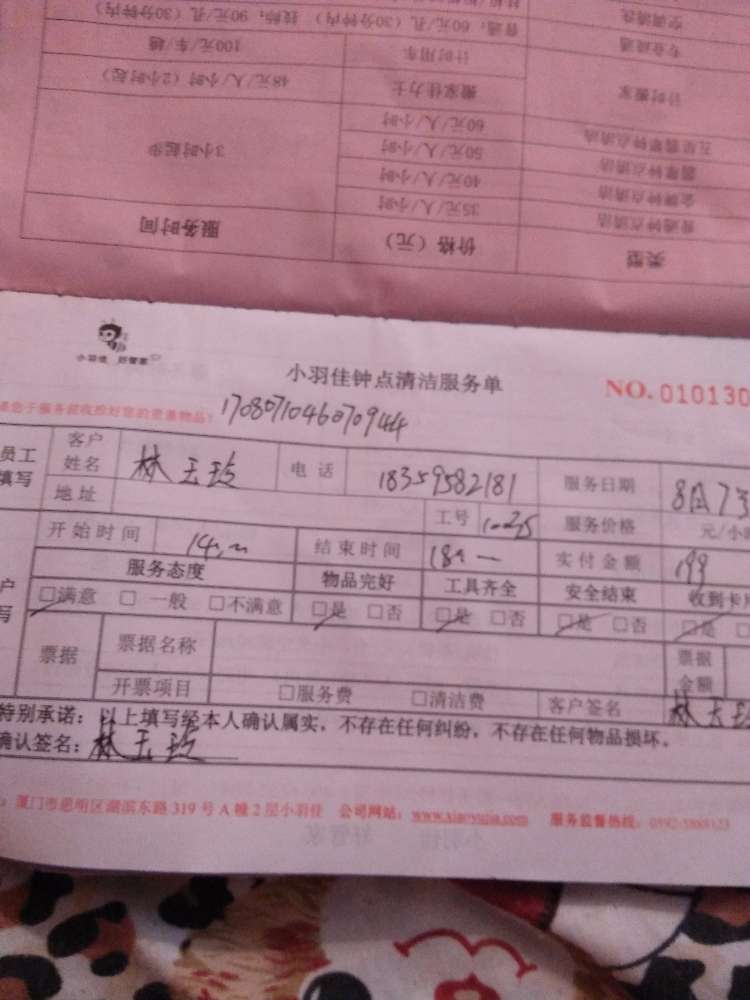 空调清洗
专业疏通 普通：60元/孔（30分钟内） 技师：90元/孔（30分钟内）
计时搬家 计时用车 100元/车/趟
搬家佳力士 48元/人/小时（2小时起）
五星翡翠钟点清洁 60元/人/小时
翡翠钟点清洁 50元/人/小时
金牌钟点清洁 40元/人/小时 3小时起步
普通钟点清洁 35元/人/小时
类型 价格（元） 服务时间
小羽佳 好管家
小羽佳钟点清洁服务单
NO. 010130
您于服务前收拾好您的贵重物品！ 1708071046070944
员工填写 客户姓名 林玉玲 电话 18359582181 服务日期
地址 工号 服务价格 元/小时
开始时间 结束时间 实付金额 199
服务态度 物品完好 工具齐全 安全结束 收到卡
□满意 □一般 □不满意 □是 □否 □是 □否 □是 □否 □是
票据 票据名称 票据金额
开票项目 □服务费 □清洁费 客户签名 林玉玲
特别承诺：以上填写经本人确认属实，不存在任何纠纷，不存在任何物品损坏。
确认签名：林玉玲
厦门市思明区湖滨东路319号A幢2层小羽佳 公司网站： 服务监督热线：